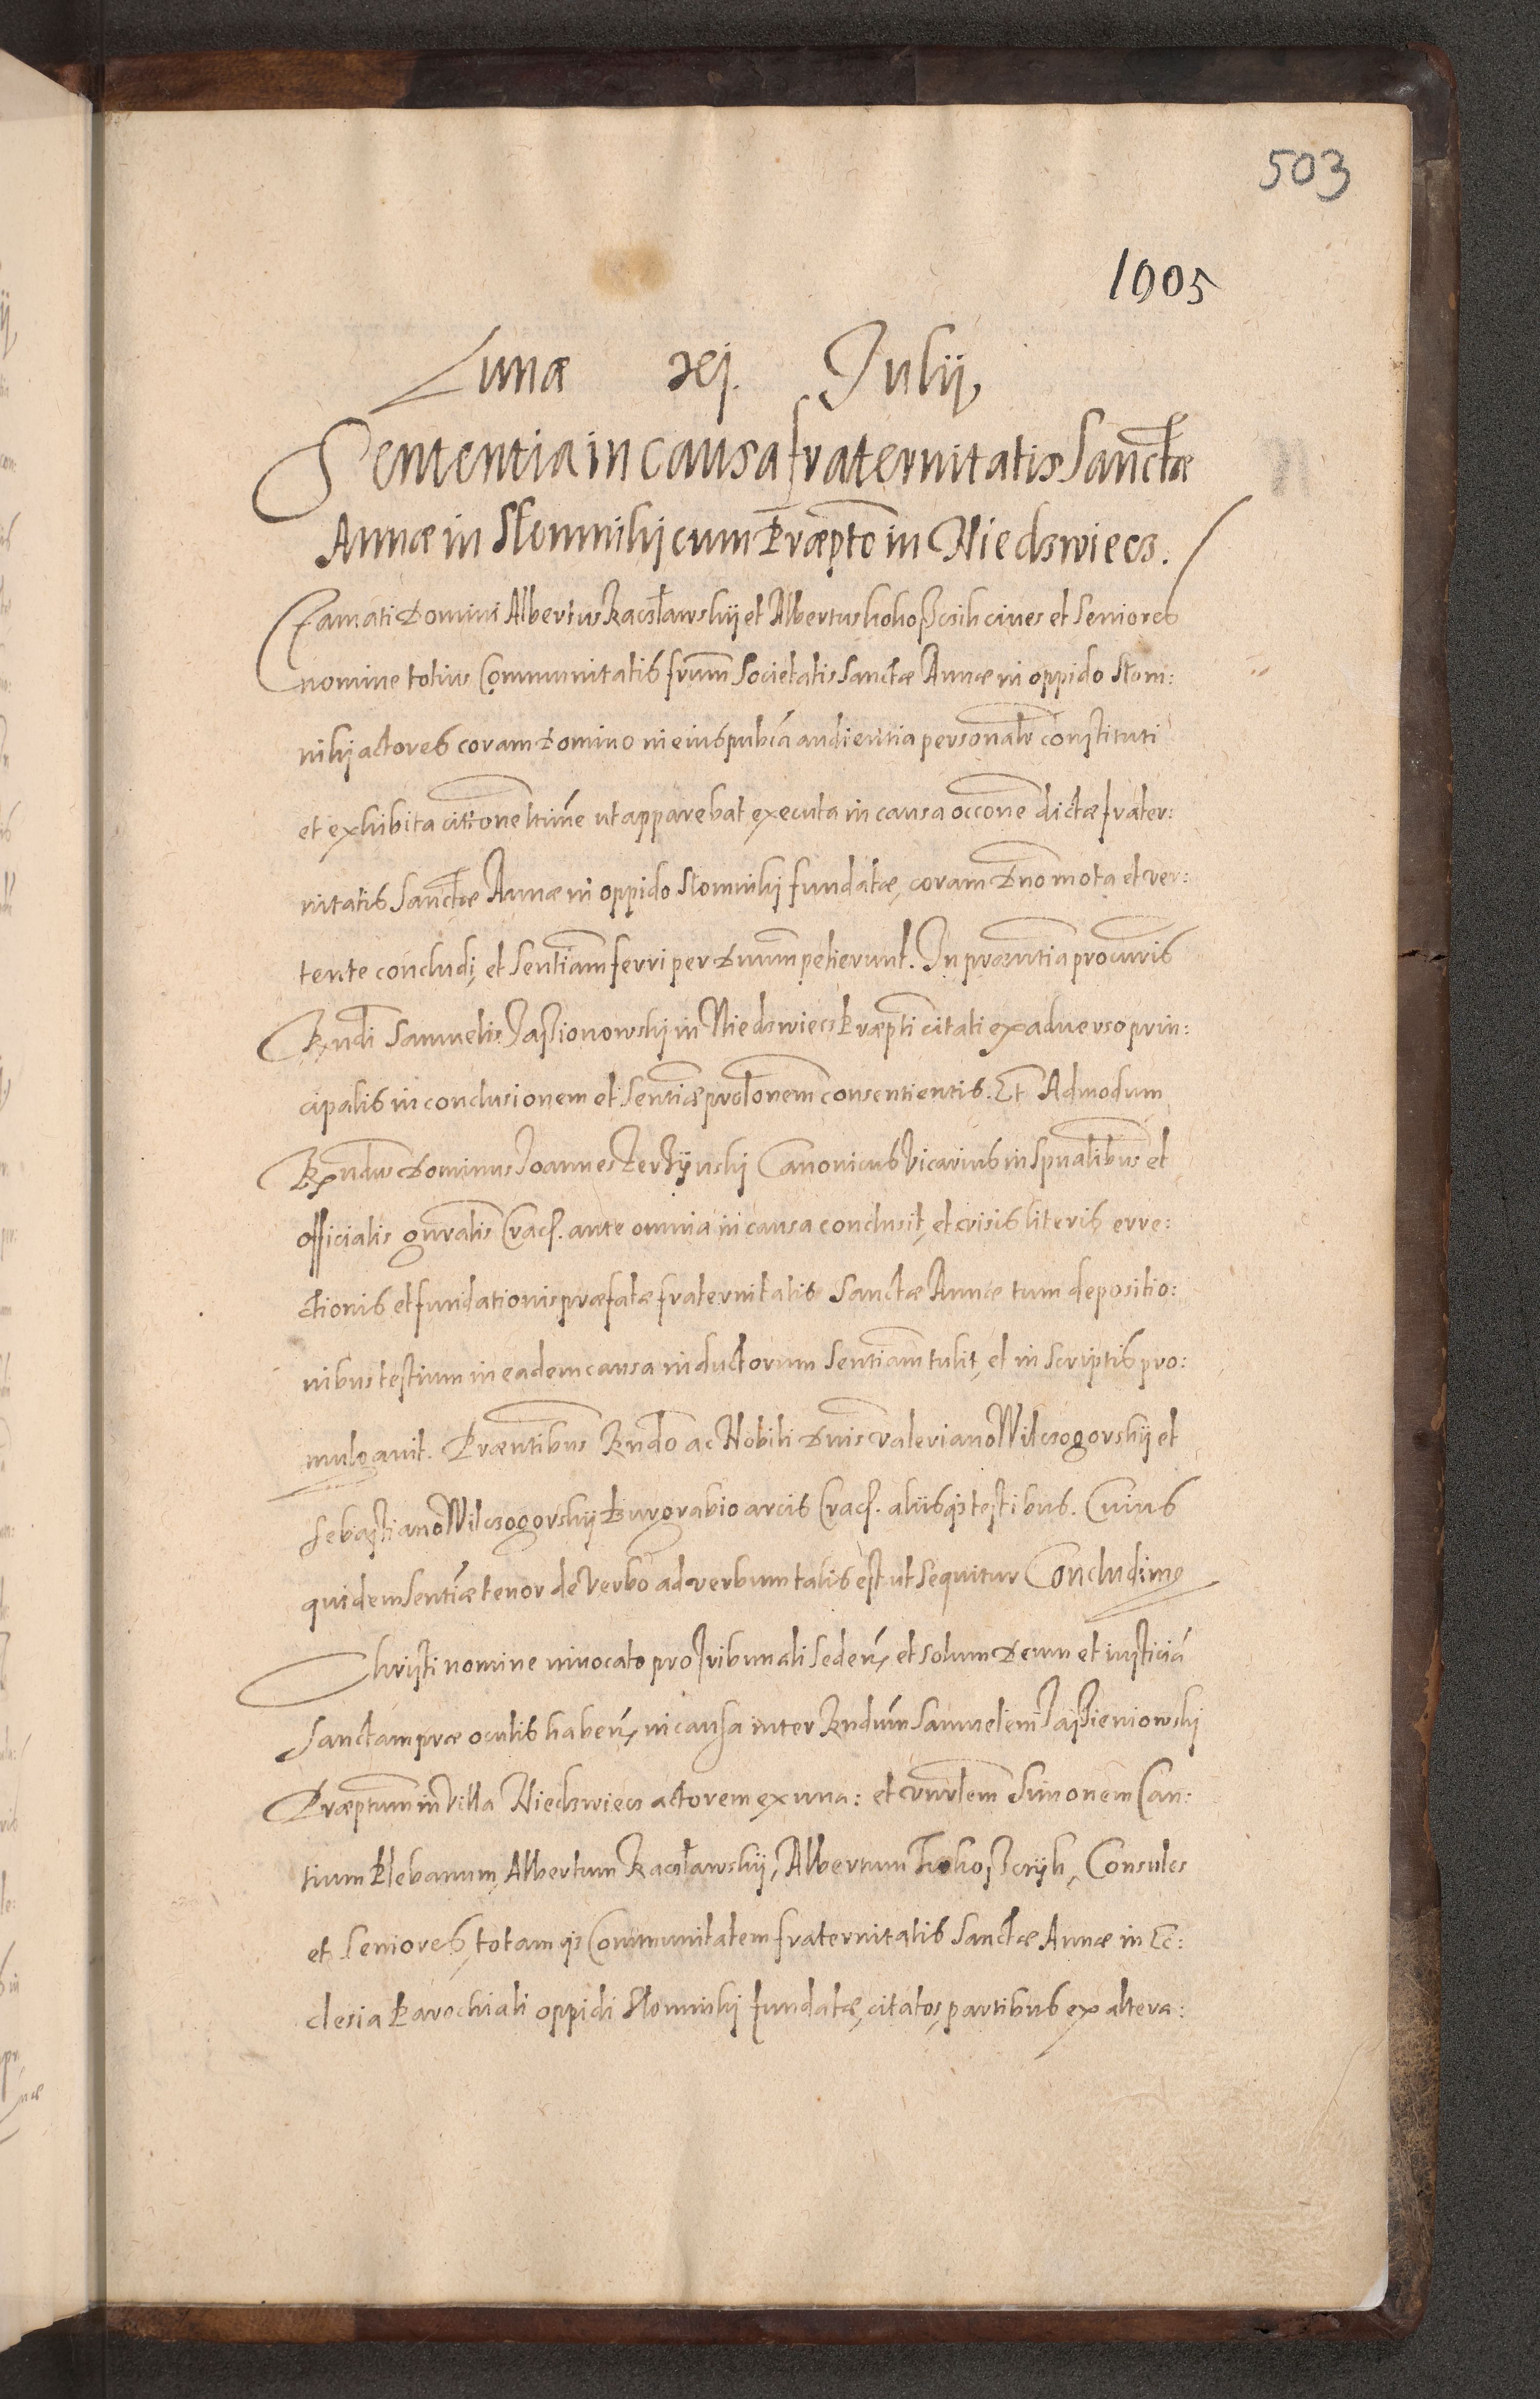 503
1005
Lunæ xj. Julij,
Sententia in causa fraternitatis Sanctæ
Annæ in Słomniki cum Præpto in Niedzwiecz.
Famati Domini Albertus Raczławskij et Albertus kokoßczik ciues et Seniores
nomine totius Communitatis frum Societatis Sanctæ Annæ in oppido Słom:
niki actores coram Domino in eius publca audientia personalr constituti
et exhibita citione ltime ut apparebat executa in causa occone dictæ frater:
nitatis Sanctæ Annæ in oppido Słomniki fundatæ, coram Dno mota et ver:
tente concludi, et Sentiam ferri per Dnum petierunt. In præntia procuris
Rndi Samuelis Jaßionowski in Niedzwiecz Præpti citati ex aduerso prin:
cipalis in conclusionem et Sentiæ prolonem consentientis. Et Admodum
Rndus Dominus Joannes Canonicus Vicarius in Spualibus et
officialis gnralis Crac. ante omnia in causa conclusit, et visis literis erre:
ctionis et fundationis præfatæ fraternitatis Sanctæ Annæ tum depositio:
nibus testium in eadem causa inductorum Sentiam tulit, et in scriptis pro:
mulgauit. Præntibus Rndo ac Nobili Dnis Valeriano Wilczogorskij et
Sebastiano Wilczogorskij Burgrabio arcis Crac. aliisq3 testibus. Cuius
quidem Sentiæ tenor de verbo ad verbum talis est ut Sequitur Concludim9
Christi nomine inuocato pro Tribunali Seden, et Solum Deum et iusticia
Sanctam præ oculis haben, in causa inter Rndum Samuelem Jaßieniowski
Præptum in Villa Niedzwiecz actorem ex una: et vnrlem Simonem Can:
tium Plebanum, Albertum Raczławskij, Albertum Kokoßczijk, Consules
et Seniores, totamq3 Communitatem fraternitatis Sanctæ Annæ in Ec:
clesia Parochiali oppidi Słomniki fundatæ, citatos, partibus ex altera: